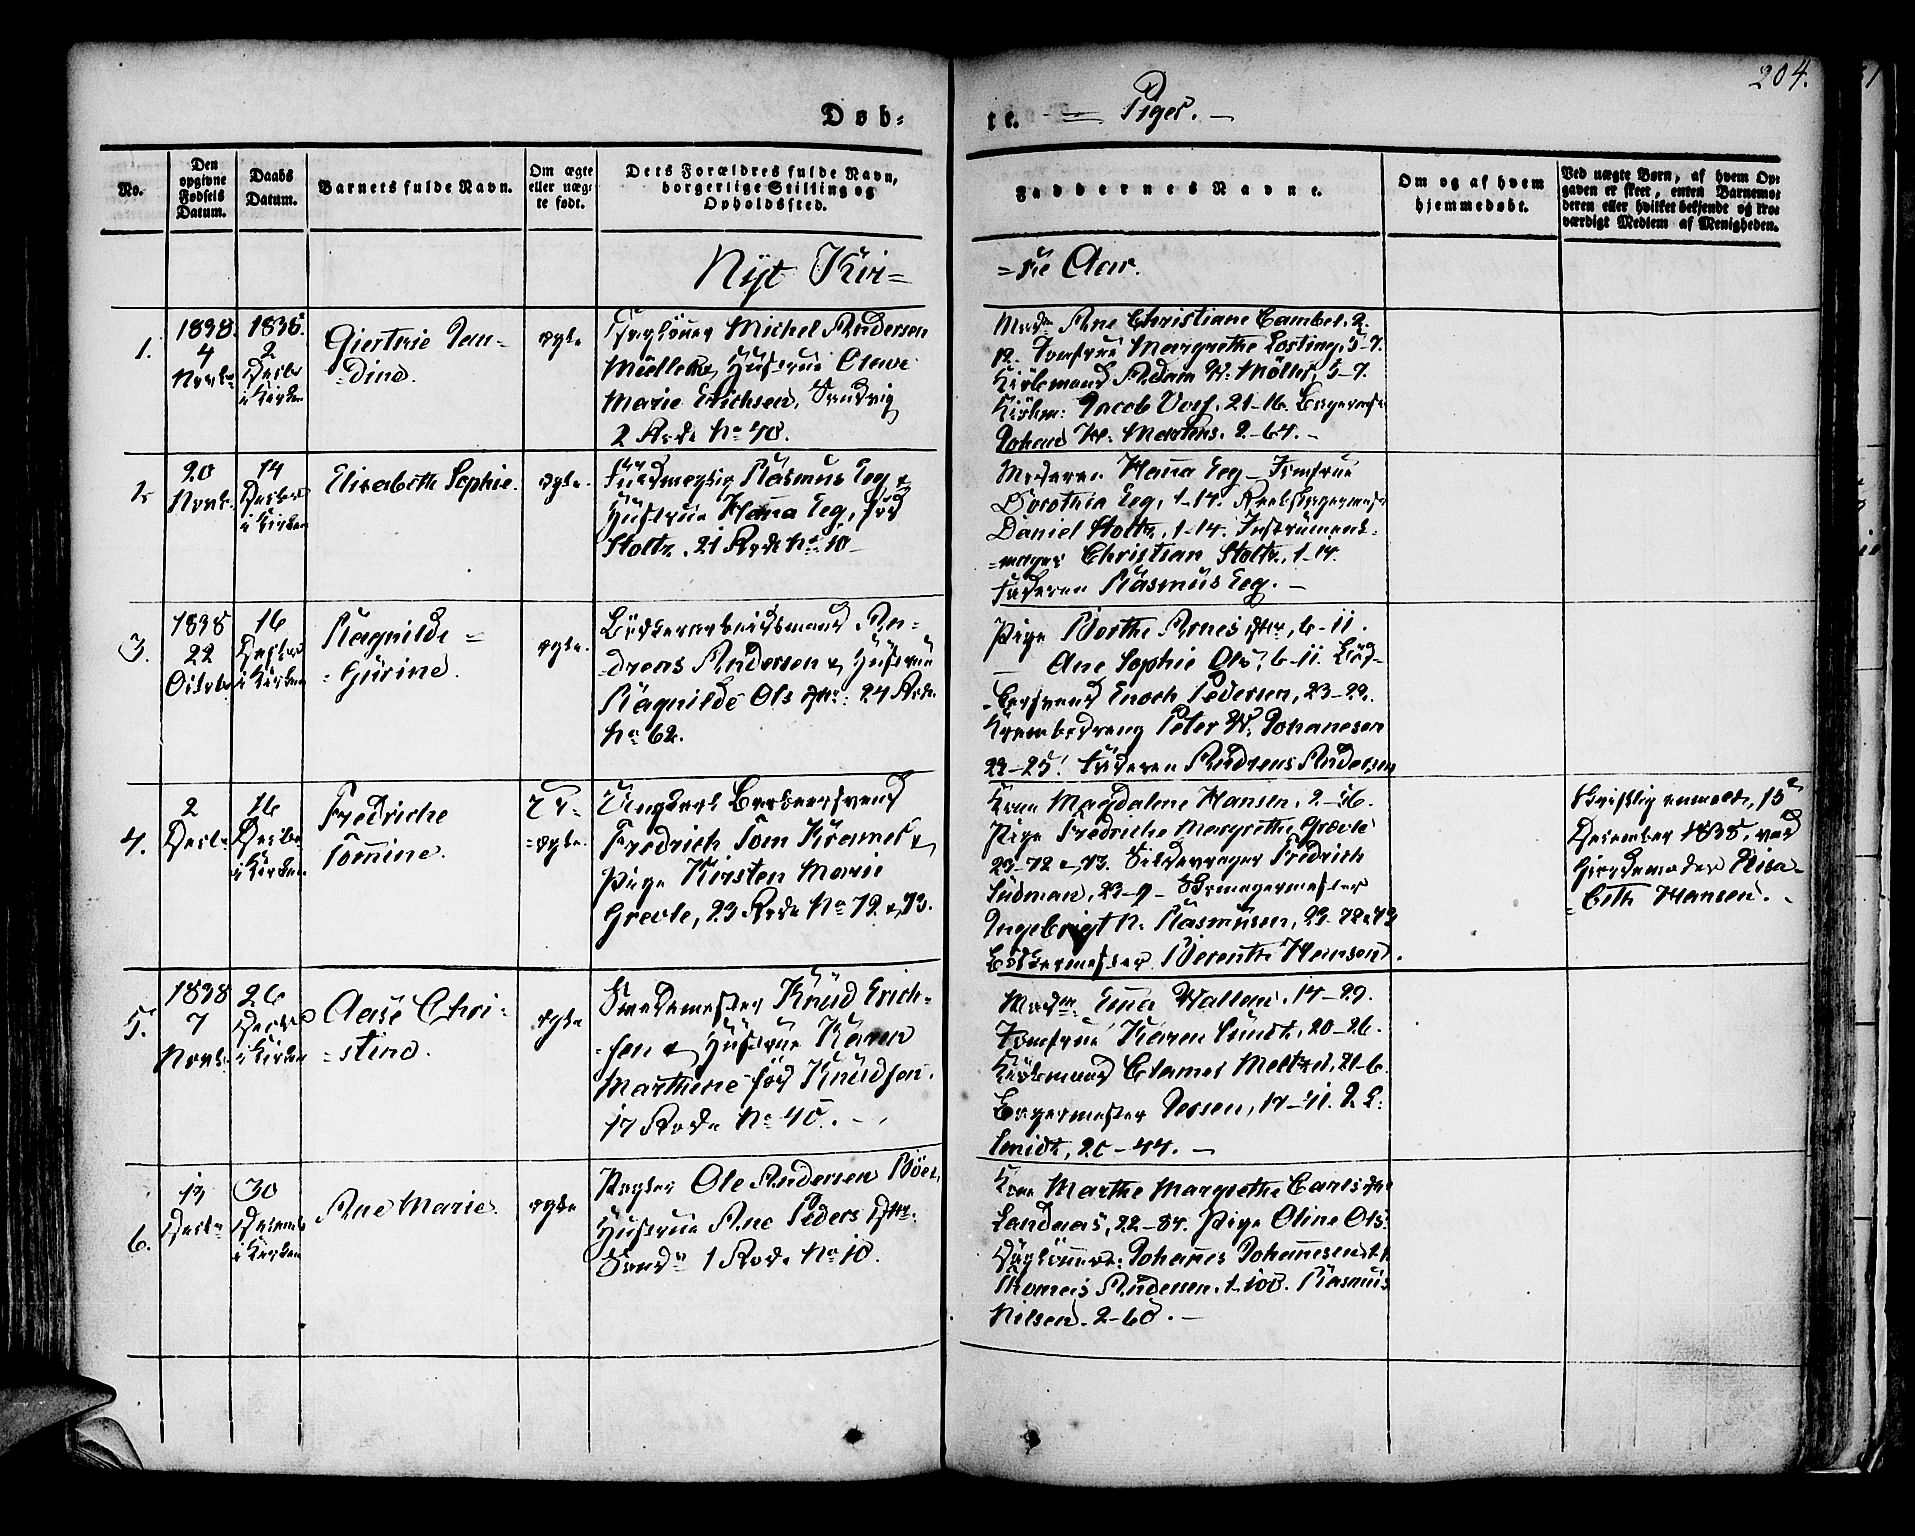 204.
Døb=
te. — Piger. —
No.
Den
opgivne
Fødsels
Datum.
Daabs
Datum.
Barnets fulde Navn.
Om ægte
eller uæg=
te født.
Dets Forældres fulde Navn,
borgerlige Stilling og
Opholdssted.
Faddernes Navne.
Om og af hvem
hjemmedøbt.
Ved uægte Børn, af hvem Op=
gaven er skeet, enten Barnemo=
deren eller hvilket bekjendt og tro=
værdigt Medlem af Menigheden.
Nyt Kir=
=ke Aar.
1.
1838.
4
Novbr
1838.
2
Decbr
i Kirken
Giertrie Jan=
=dine.
ægte
Michel Andersen
Hustrue Olene
Marie Erichsen, Sandvig
2 Rode No 40.
Madm Ane Christiane Gambel. 2.
12. Jomfrue Margrethe Losting, 5-7.
Kiøbmand Adam W. Møller, 5-7.
Kiøbm: Jacob 21-16.
Johan W: Martens. 2-64. —
2
20
Novbr.
14
Decbr
i Kirken
Elisabeth Sophie.
ægte.
Rasmus Eeg &
Hustrue Hanna Eeg, fød
Stoltz. 21 Rode No 10—
Moderen Hanna Eeg — Jomfrue
Dorothea Eeg, 1-14.
Daniel Stoltz, 1-14. Instrument=
=mager Christian Stoltz, 1-14.
Faderen Rasmus Eeg. —
3.
1838
22
Octobr
16
Decbr
i Kirken
Ragnilde =
=Gurine.
ægte.
An=
=dreas Andersen & Hustrue
Ragnilde Ols dtr: 24 Rode
No 62.
Pige Berthe Arnes dtr, 6-11.
— Ane Sophie Ols, 6-11. Bød=
=kersvend Enoch Pedersen, 23-22.
Krambodreng Peter W. Johanesen
22-25. Faderen Andreas Andersen
4.
2
Decbr
16
Decbr
i Kirken
Fredriche
Tomine.
=ægte.
Ungkarl
Fredrich Tom Kramer &
Pige Kirsten Marie
Grevle, 23 Rode No 72 & 73.
Kone Magdalene Hansen, 2-36.
Pige Fredriche Margrethe Grevle
23-72 & 73. Fredrich
Sudman, 23-9 — Skomagermester
Ingebrigt N. Rasmusen, 23-72 & 73
Bødkermester Berenth Hansen.
Skriftlig anmeldt, 15de
December 1838, ved
Giordemoder Elisa=
=beth Hansen.
5.
1838
7
Novbr.
26
Decbr
i Kirken
Aase Chri=
=stine.
ægte
Knud Erich=
=sen & Hustrue Karen
Marthene fød Knudsen.
17 Rode No 40. —
Madm: 14-29.
Jomfrue Karen Sundt, 20-26.
Kiøbmand Clamer Meltzer, 21-6.
Bagermester Jersen, 17-11.
Smidt, 20-44. —
6.
13
Decbr
30
Decemb
i Kirken
Ane Marie.
ægte
Ole Andersen Böe,
Hustrue Ane Peders Dtr:
1 Rode No 10.
Kone Marthe Margrethe Carls dtr
Landaas, 22-84. Pige Oline Ols:
Daglönnere: Johanes Johannesen
Thomas Andersen. 1-100. Rasmus
Nilsen. 2-60. —